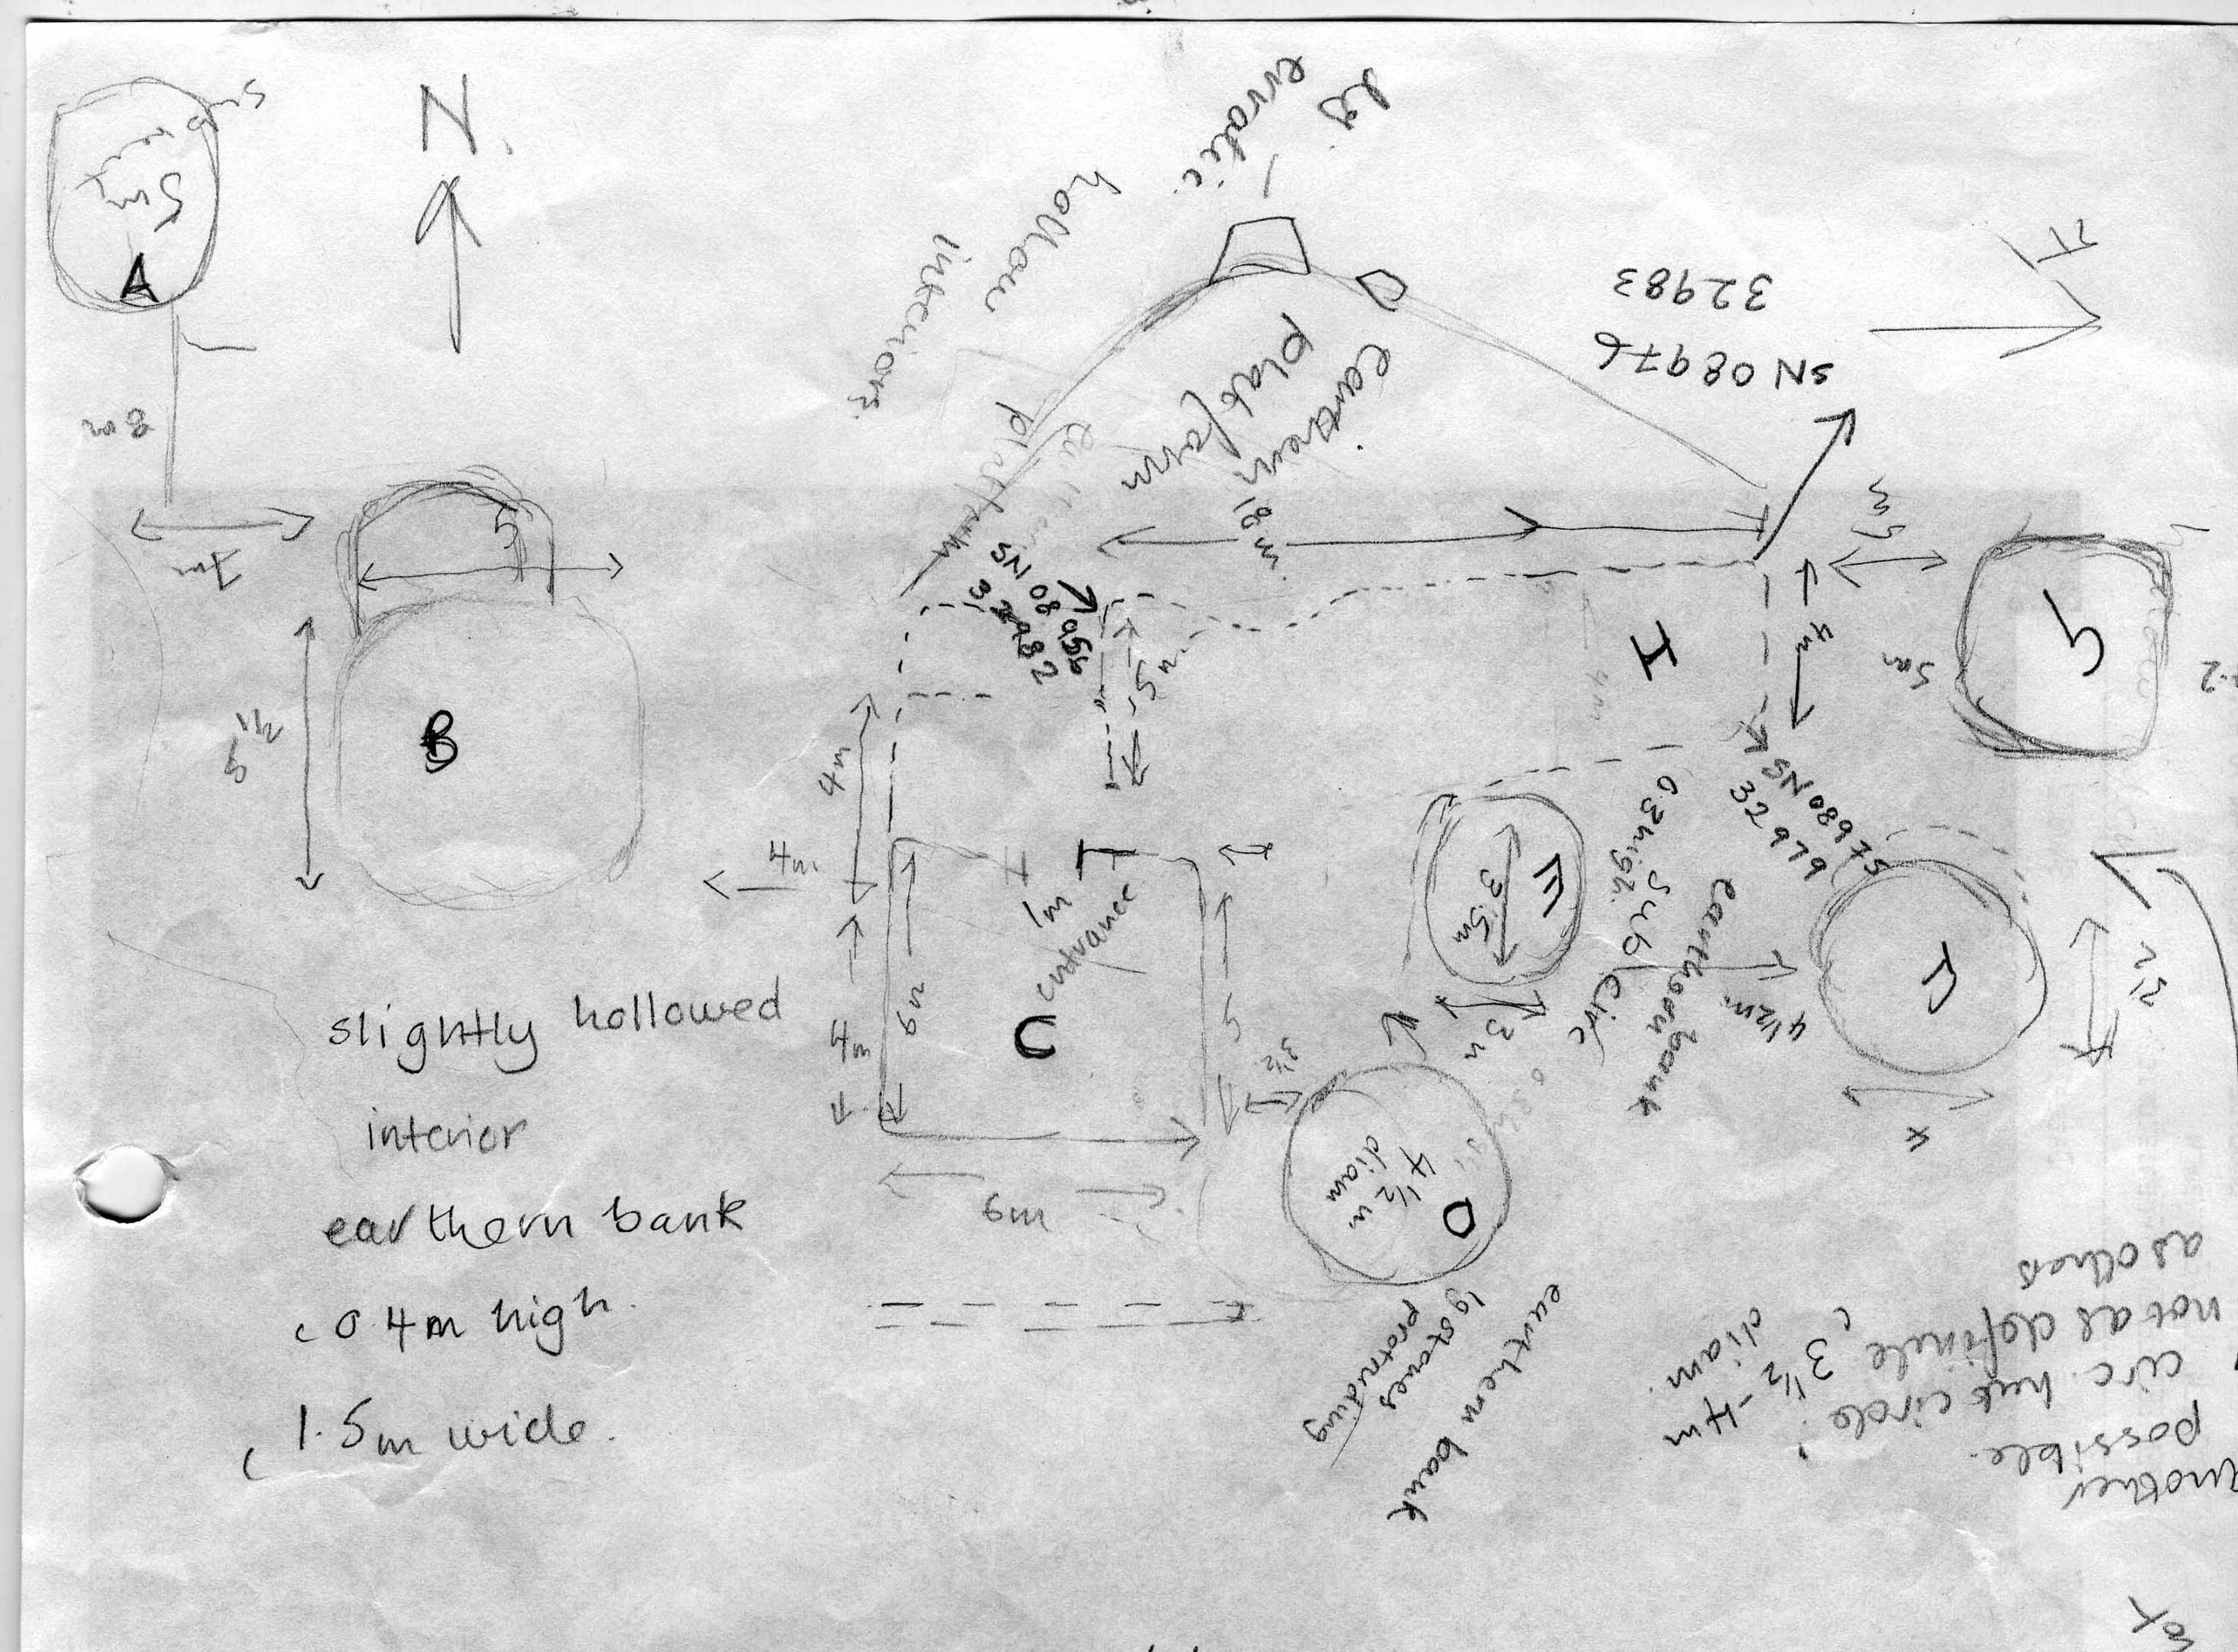 N.
5m
A
8m
7m
5
B
5 1/2
lg
erratic.
hollow
interior.
earthern
platform
18m
SN 08956
32982
SN 08976
32983
5m
5m
4m
I
SN 08975
32979
4m
4m
4m
6m
1m
entrance
C
5
3 1/2
6m
E
3.5m
3m
0.3high.
sub circ
earthern bank
4 1/2m
F
4
4 1/2 m
diam
D
earthern bank
lg stones
protruding
another
possible
circ. hut circle.
not as definite
as others
c 3 1/2 - 4m
diam.
slightly hollowed
interior
earthern bank
c 0.4m high.
c 1.5m wide.